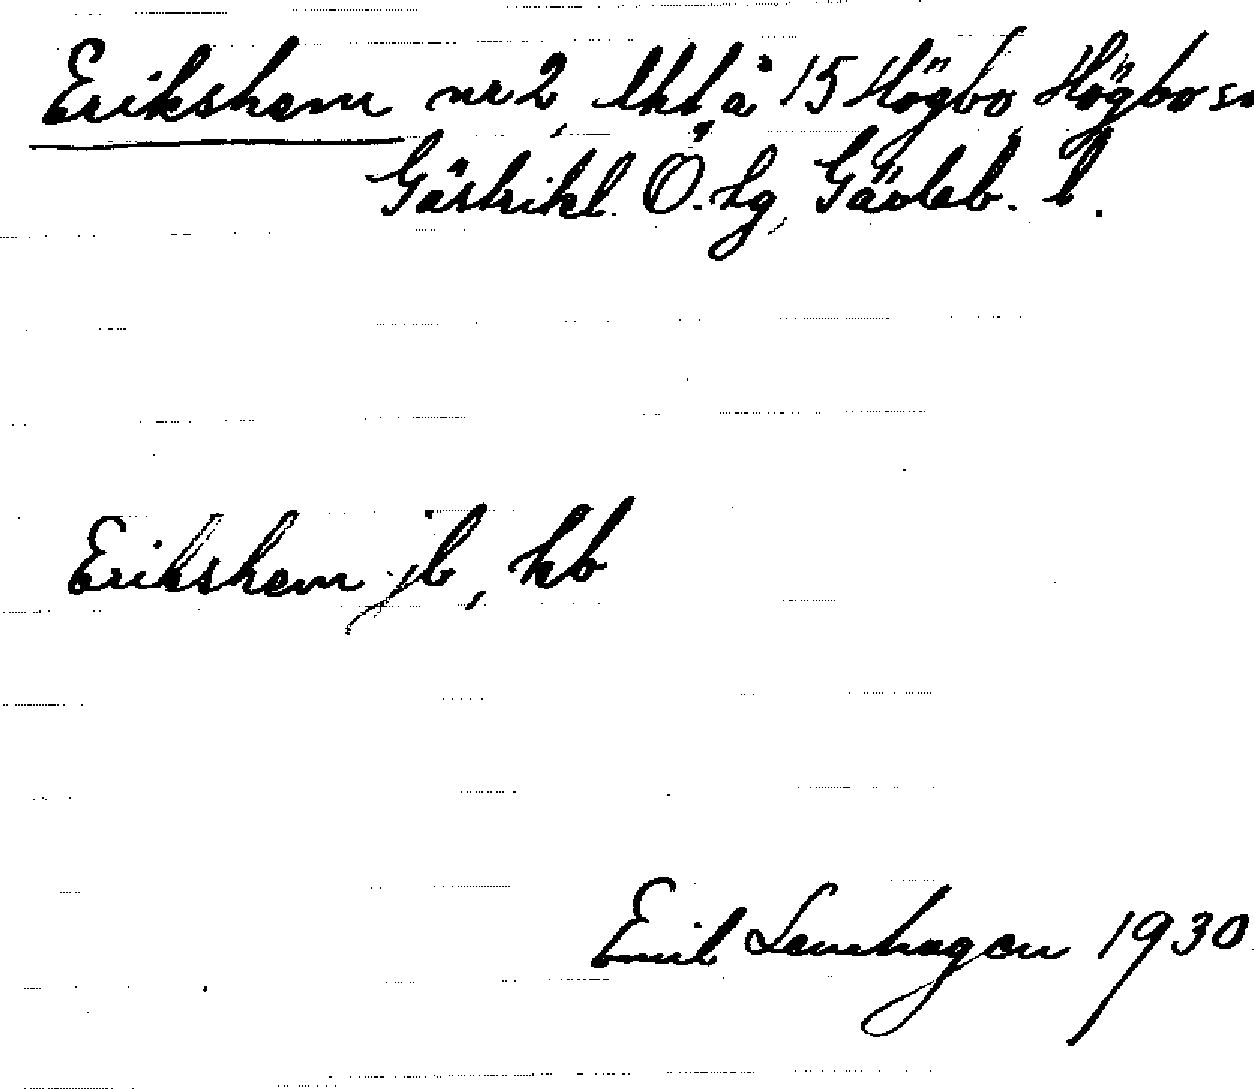 Erikshem nr 2, lht å 15 Högbo Högbo sn
Gästrikl. Ö. tg, Gävleb. l.
Erikshem jb, kb
Emil Lenhagen 1930